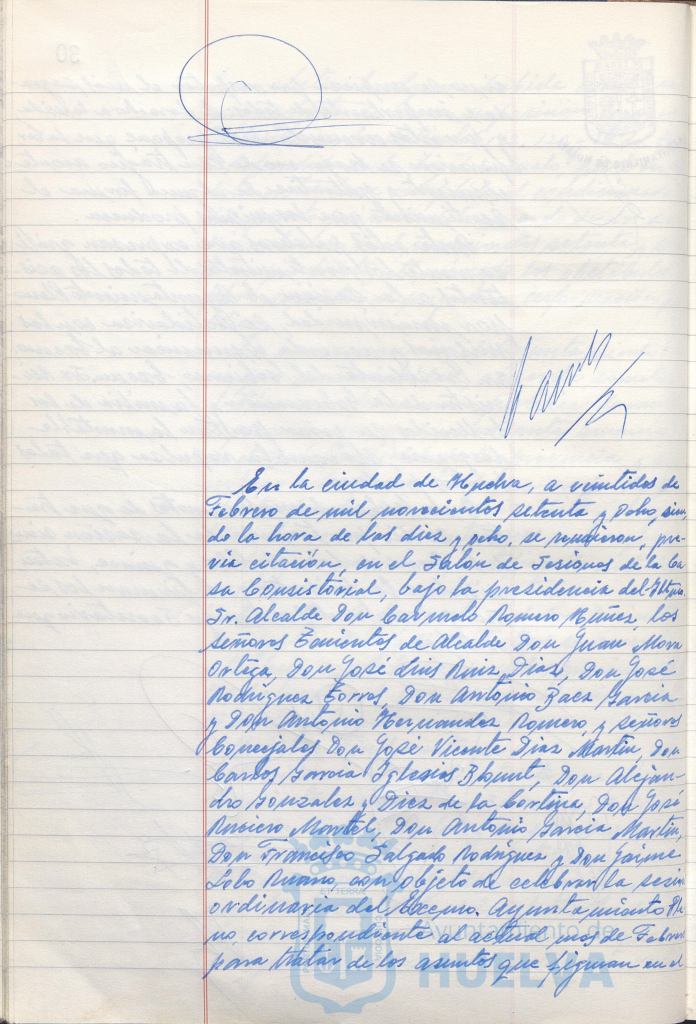 En la ciudad de Huelva, a veintidos de
Febrero de mil novecientos setenta y ocho, sien
do la hora de las diez y ocho, se reunieron, pre
via citación, en el Salón de Sesiones de la Ca
sa Consistorial, bajo la presidencia del Iltmo.
Sr. Alcalde Don Carmelo Romero Núñez, los
señores Tenientes de Alcalde Don Juan Mora
Ortega, Don José Luis Ruiz Díaz, Don José
Rodríguez Torres, Don Antonio Baez García
y Don Antonio Hernandez Romero, y señores
Concejales Don José Vicente Díaz Martín, Don
Carlos García Iglesias Blount, Don Alejan-
dro Gonzalez y Diez de la Cortina, Don José
Rosiero Montel, Don Antonio García Martín,
Don Francisco Salgado Rodríguez y Don Jaime
Lobo Ruano con objeto de celebrar la sesión
ordinaria del Excmo. Ayuntamiento Ple
no, correspondiente al actual mes de Febrero
para tratar de los asuntos que figuran en el
Ayuntamiento de
HUELVA